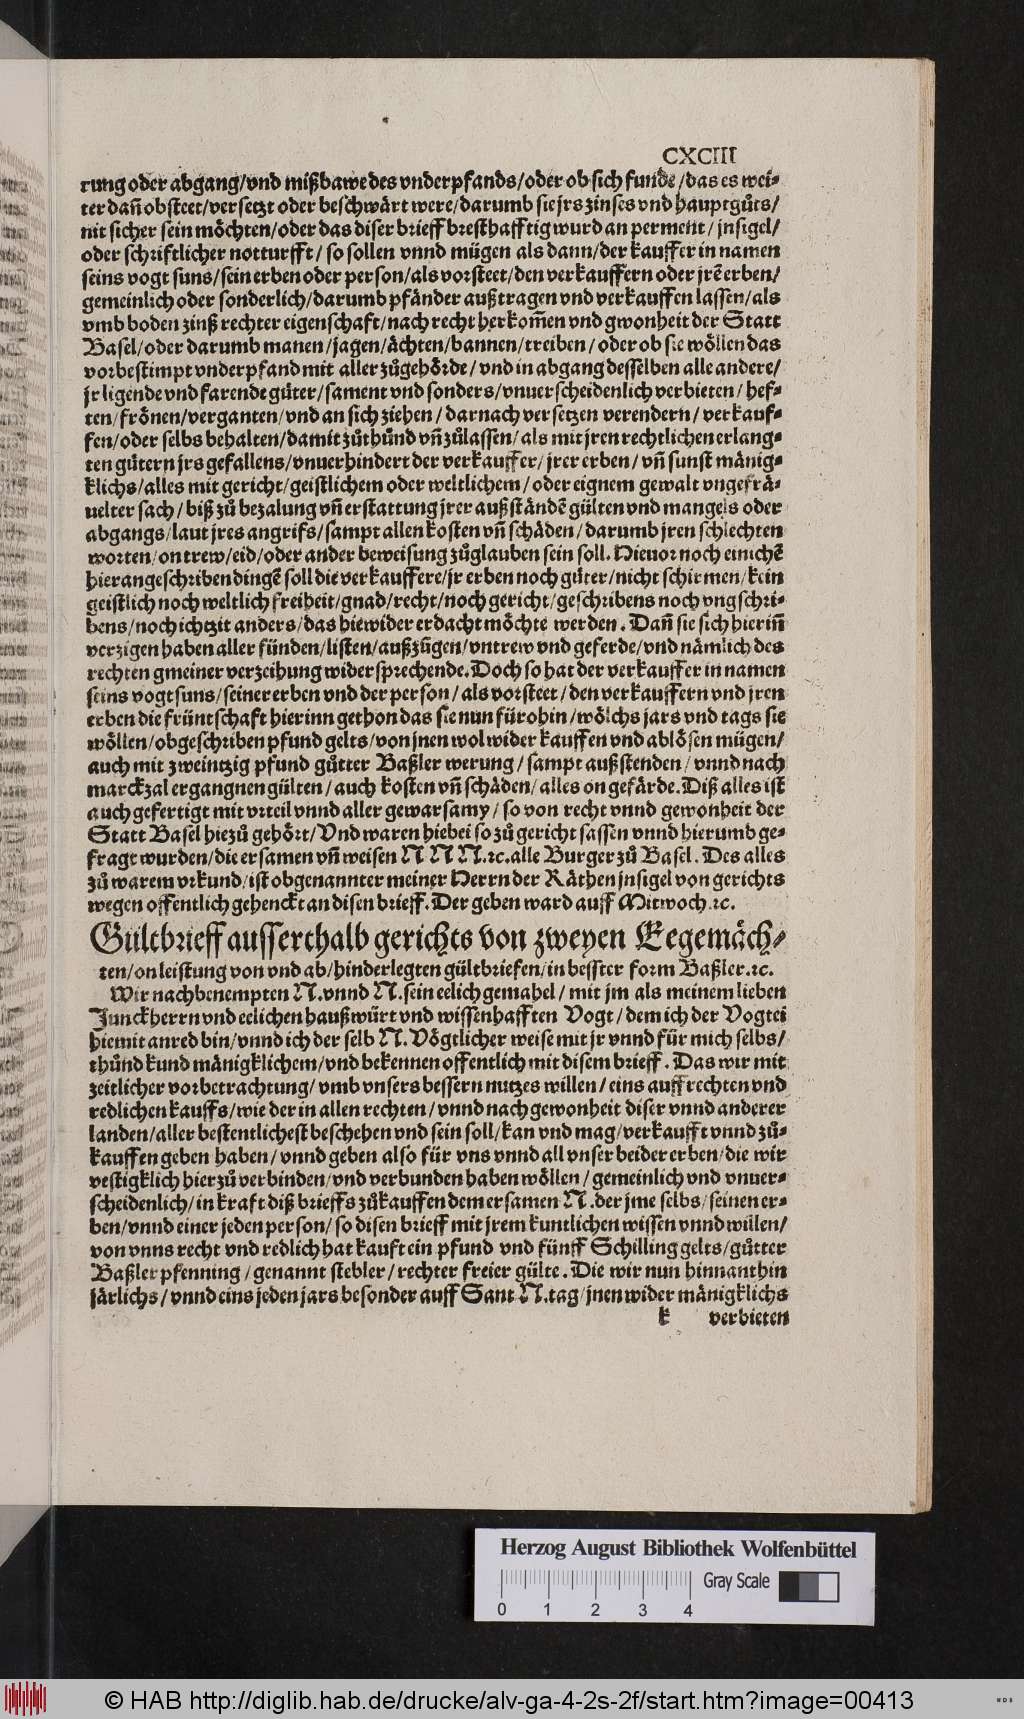 CXCIII
rung oder abgang/vnd mißbawe des vnderpfands/oder ob sich funde/das es wei-
ter dañ obsteet/versetzt oder beschwärt were/darumb sie jrs zinses vnd hauptgůts/
nit sicher sein möchten/oder das diser brieff bresthafftig wurd an perment/jnsigel/
oder schriftlicher notturfft/so sollen vnnd mügen als dann/der kauffer in namen
seins vogt suns/sein erben oder person/als vorsteet/den verkauffern oder jrē erben/
gemeinlich oder sonderlich/darumb pfänder außtragen vnd verkauffen lassen/als
vmb boden zinß rechter eigenschaft/nach recht herkom̃en vnd gwonheit der Statt
Basel/oder darumb manen/jagen/ächten/bannen/treiben/oder ob sie wöllen das
vorbestimpt vnderpfand mit aller zůgehörde/vnd in abgang desselben alle andere/
jr ligende vnd farende güter/sament vnd sonders/vnuerscheidenlich verbieten/hef-
ten/frönen/verganten/vnd an sich ziehen/darnach versetzen verendern/verkauf-
fen/oder selbs behalten/damit zůthůnd vñ zůlassen/als mit jren rechtlichen erlang-
ten gütern jrs gefallens/vnuerhindert der verkauffer/jrer erben/vñ sunst mänig-
klichs/alles mit gericht/geistlichem oder weltlichem/oder eignem gewalt vngefrä-
uelter sach/biß zů bezalung vñ erstattung jrer außständē gülten vnd mangels oder
abgangs/laut jres angrifs/sampt allen kosten vñ schäden/darumb jren schlechten
worten/on trew/eid/oder ander beweisung zůglauben sein soll. Hieuor noch einichē
hierangeschriben dingē soll die verkauffere/jr erben noch güter/nicht schirmen/kein
geistlich noch weltlich freiheit/gnad/recht/noch gericht/geschribens noch vngschri-
bens/noch ichtzit anders/das hiewider erdacht möchte werden. Dañ sie sich hieriñ
verzigen haben aller fünden/listen/außzügen/vntrew vnd geferde/vnd nämlich des
rechten gmeiner verzeihung widersprechende. Doch so hat der verkauffer in namen
seins vogt suns/seiner erben vnd der person/als vorsteet/den verkauffern vnd jren
erben die früntschaft hierinn gethon das sie nun fürohin/wölchs jars vnd tags sie
wöllen/obgeschriben pfund gelts/von jnen wol wider kauffen vnd ablösen mügen/
auch mit zweintzig pfund gůtter Baßler werung/sampt außstenden/vnnd nach
marckzal ergangnen gülten/auch kosten vñ schäden/alles on gefärde. Diß alles ist
auch gefertigt mit vrteil vnnd aller gewarsamy/so von recht vnnd gewonheit der
Statt Basel hiezů gehört/Vnd waren hiebei so zů gericht sassen vnnd hierumb ge-
fragt wurden/die ersamen vñ weisen N N N.ꝛc. alle Burger zů Basel. Des alles
zů warem vrkund/ist obgenannter meiner Herrn der Räthen jnsigel von gerichts
wegen offentlich gehenckt an disen brieff. Der geben ward auff Mitwoch.ꝛc.
Gültbrieff ausserthalb gerichts von zweyen Eegemäch-
ten/on leistung von vnd ab/hinderlegten gültbriefen/in besster form Baßler.ꝛc.
Wir nachbenempten N. vnnd N. sein eelich gemahel/mit jm als meinem lieben
Junckherrn vnd eelichen haußwürt vnd wissenhafften Vogt/dem ich der Vogtei
hiemit anred bin/vnnd ich der selb N. Vögtlicher weise mit jr vnnd für mich selbs/
thůnd kund mänigklichem/vnd bekennen offentlich mit disem brieff. Das wir mit
zeitlicher vorbetrachtung/vmb vnsers bessern nutzes willen/eins auffrechten vnd
redlichen kauffs/wie der in allen rechten/vnnd nach gewonheit diser vnnd anderer
landen/aller bestentlichest beschehen vnd sein soll/kan vnd mag/verkaufft vnnd zů-
kauffen geben haben/vnnd geben also für vns vnnd all vnser beider erben/die wir
vestigklich hierzů verbinden/vnd verbunden haben wöllen/gemeinlich vnd vnuer-
scheidenlich/in kraft diß brieffs zůkauffen dem ersamen N. der jme selbs/seinen er-
ben/vnnd einer jeden person/so disen brieff mit jrem kuntlichen wissen vnnd willen/
von vnns recht vnd redlich hat kauft ein pfund vnd fünff Schilling gelts/gůtter
Baßler pfenning/genannt stebler/rechter freier gülte. Die wir nun hinnanthin
järlichs/vnnd eins jeden jars besonder auff Sant N. tag/jnen wider mänigklichs
k verbieten
Herzog August Bibliothek Wolfenbüttel
Gray Scale
0 1 2 3 4
© HAB http://diglib.hab.de/drucke/alv-ga-4-2s-2f/start.htm?image=00413